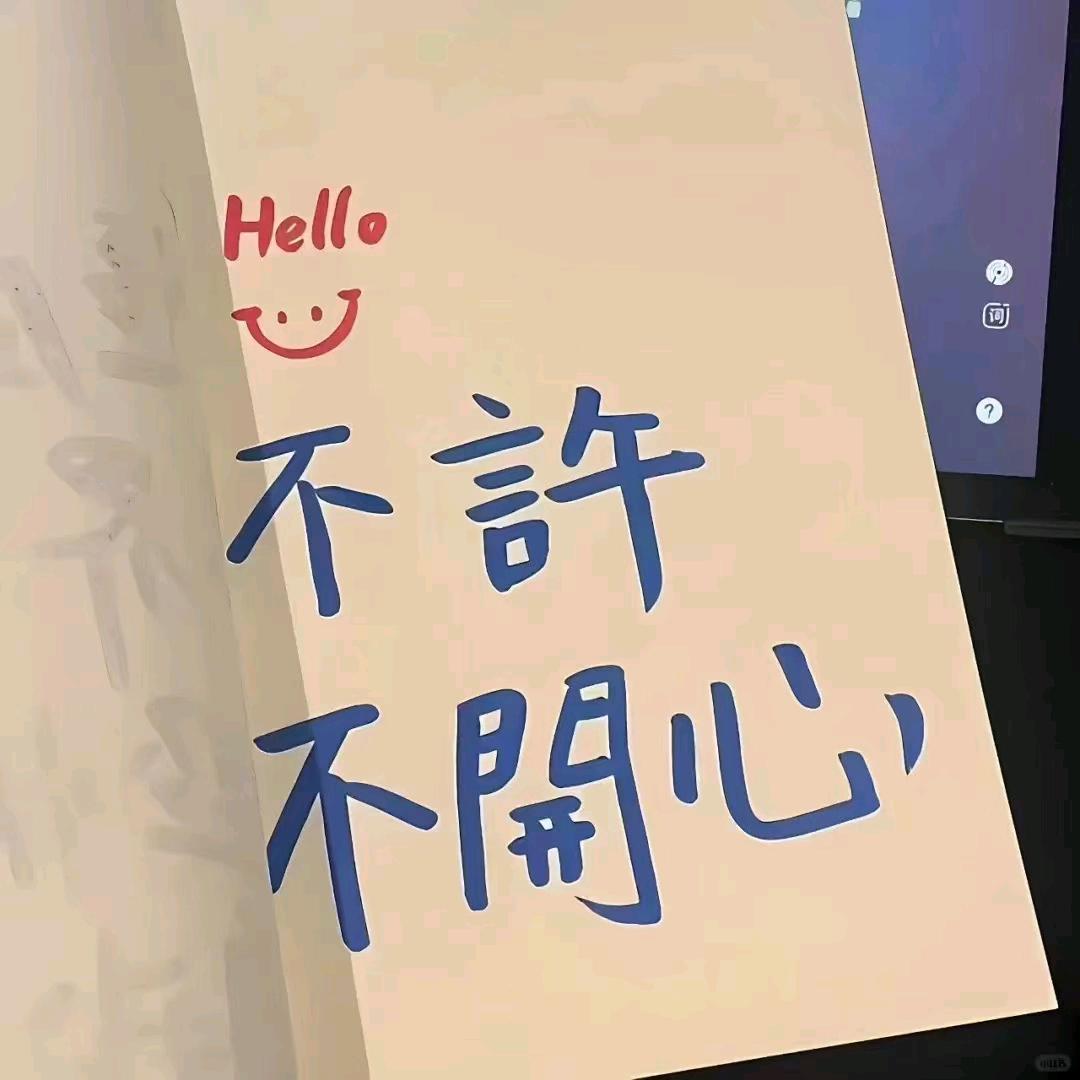 Hello
不許
不開心
词
?